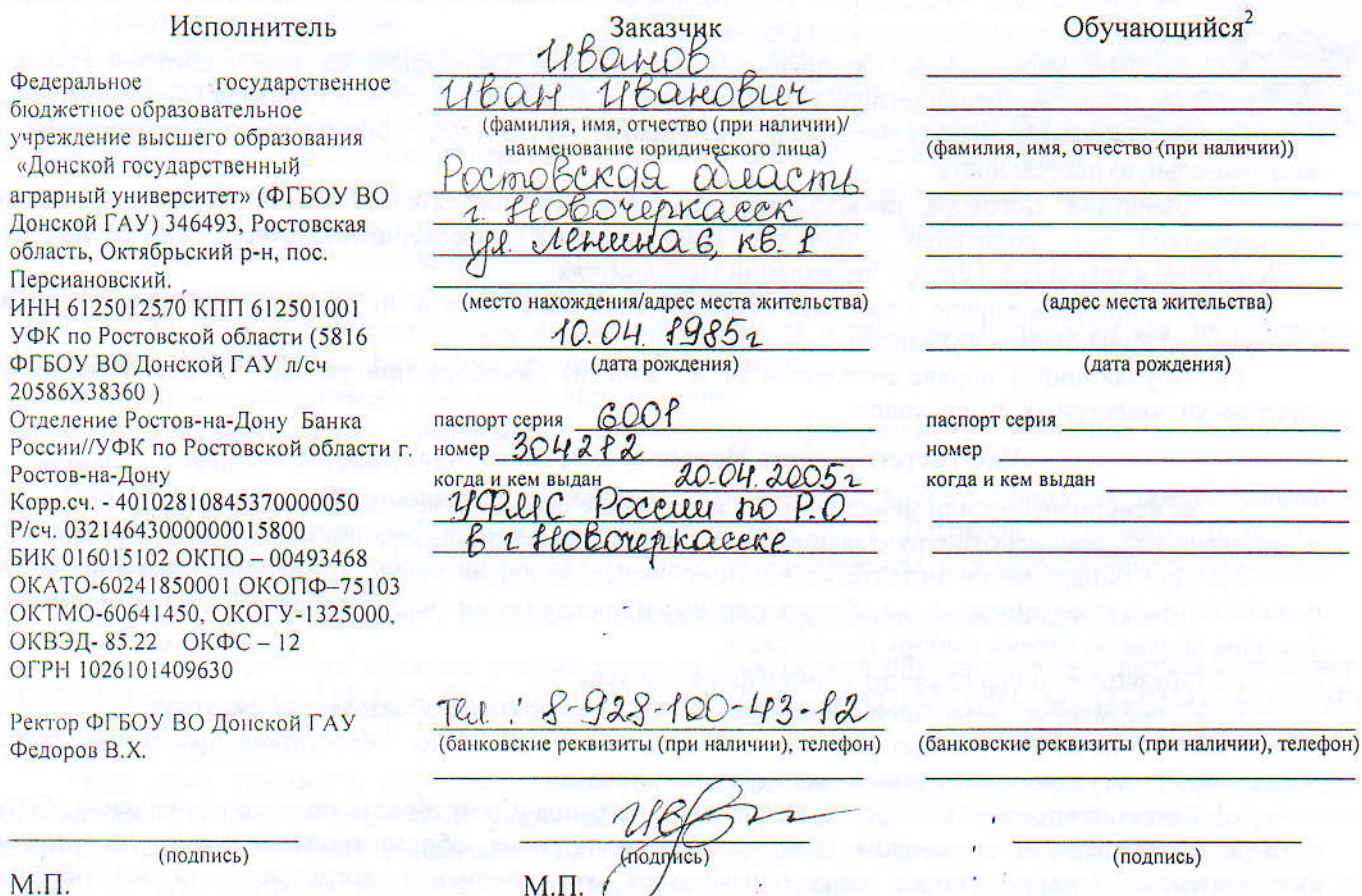 Исполнитель
Федеральное государственное
бюджетное образовательное
учреждение высшего образования
«Донской государственный
аграрный университет» (ФГБОУ ВО
Донской ГАУ) 346493, Ростовская
область, Октябрьский р-н, пос.
Персиановский.
ИНН 6125012570 КПП 612501001
УФК по Ростовской области (5816
ФГБОУ ВО Донской ГАУ л/сч
20586Х38360)
Отделение Ростов-на-Дону Банка
России//УФК по Ростовской области г.
Ростов-на-Дону
Корр.сч. - 40102810845370000050
Р/сч. 03214643000000015800
БИК 016015102 ОКПО - 00493468
ОКАТО-6024185000 ОКОПФ–75103
ОКТМО-60641450, ОКОГУ-1325000,
ОКВЭД- 85.22 ОКФС – 12
ОГРН 1026101409630
Ректор ФГБОУ ВО Донской ГАУ
Федоров В.Х.
(подпись)
М.П.
Заказчик
Иванов
Иван Иванович
(фамилия, имя, отчество (при наличии)/
наименование юридического лица)
Ростовская область
г. Новочеркасск
ул. Ленина 6, кв. 1
(место нахождения/адрес места жительства)
10.04.1985г
(дата рождения)
паспорт серия 6001
номер 304282
когда и кем выдан 20.04.2005г
УФМС России по Р.О.
в г Новочеркасске
тел.: 8-928-100-43-12
(банковские реквизиты (при наличии), телефон)
(подпись)
М.П.
Обучающийся²
(фамилия, имя, отчество (при наличии))
(адрес места жительства)
(дата рождения)
паспорт серия
номер
когда и кем выдан
(банковские реквизиты (при наличии), телефон)
(подпись)